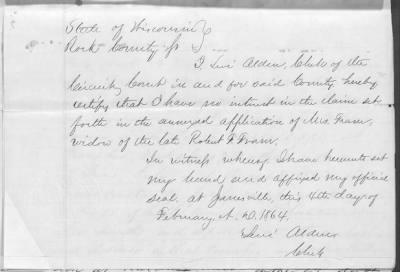 State of Wisconsin }
Rock County ss
I Levi Alden, Clerk of the
Circuit Court in and for said County, hereby
certify that I have no interest in the claim set
forth in the annexed application of Mrs Fraser,
widow of the late Robert F Fraser.
In witness whereof, I have hereunto set
my hand and affixed my official
seal at Janesville, this 4th day of
February A. D. 1864.
Levi Alden
Clerk